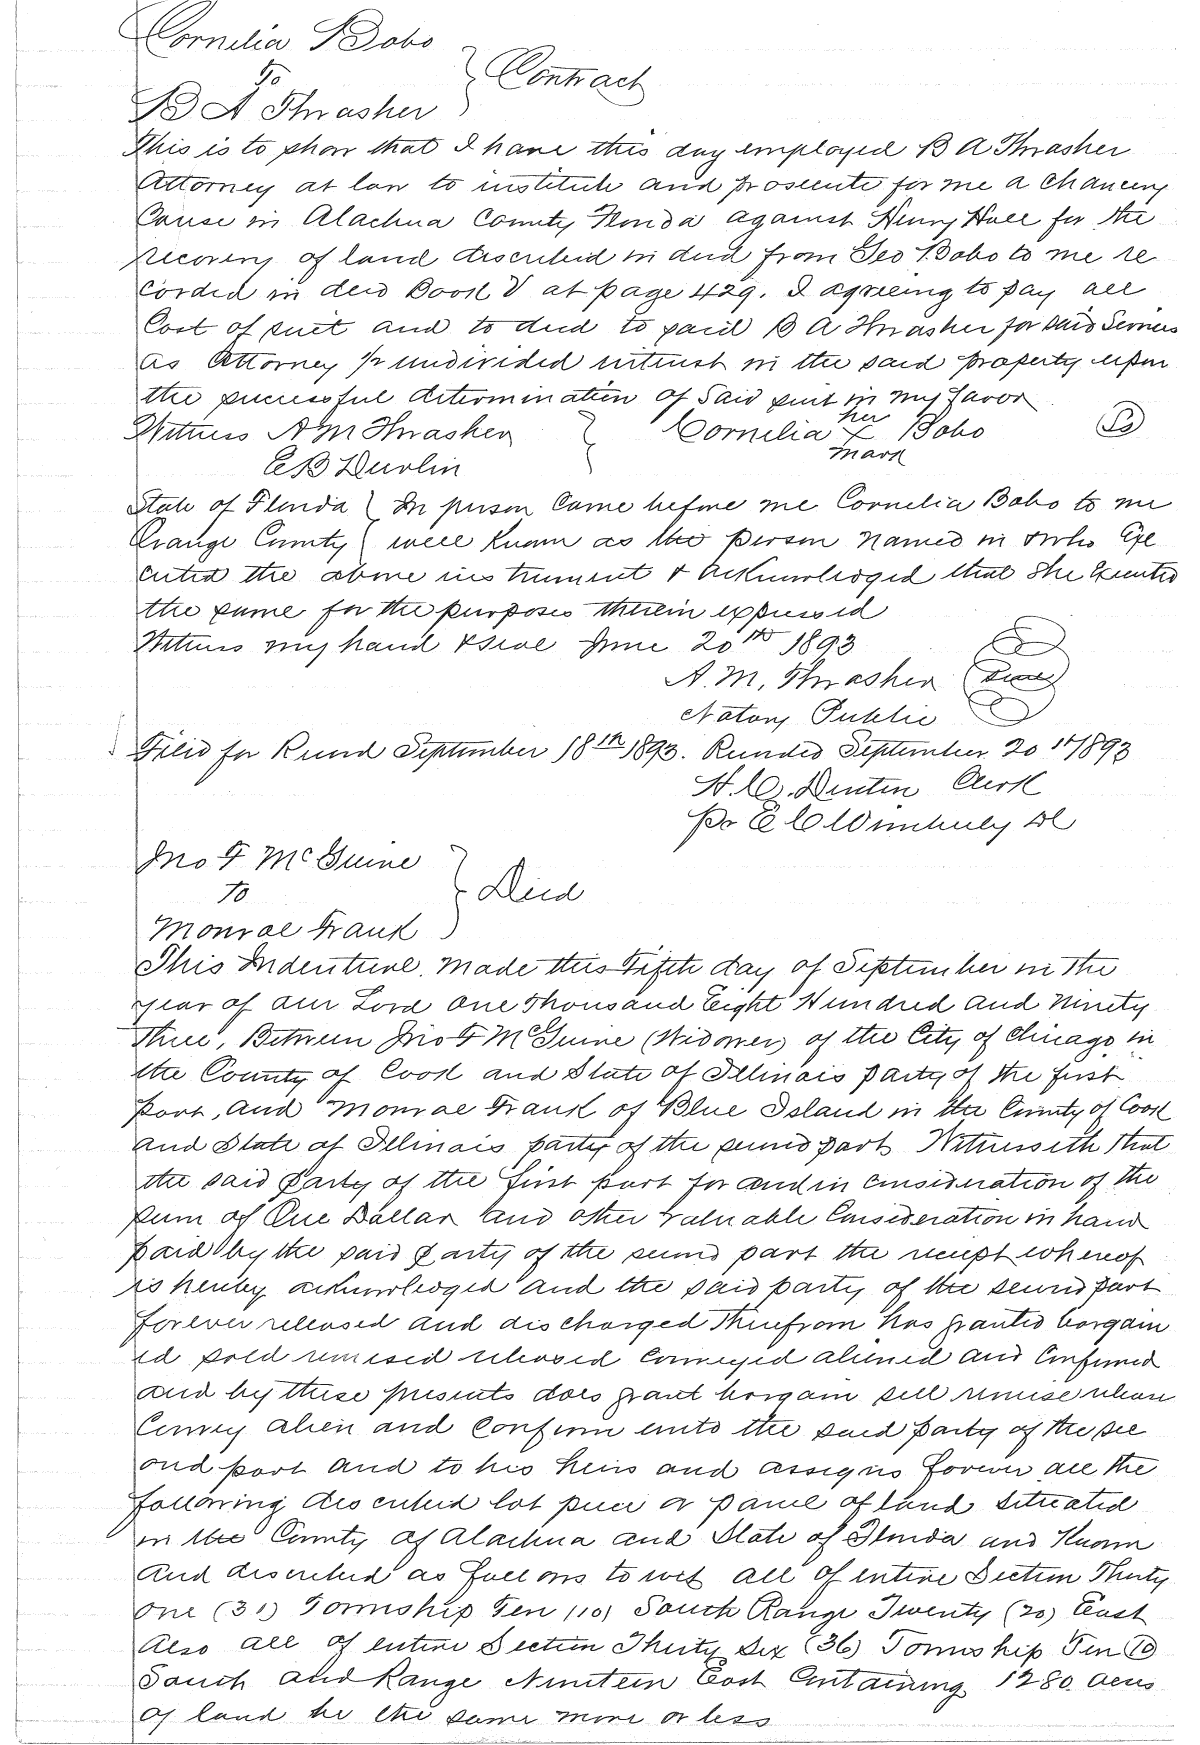 Cornelia Bobo
To } Contract
B A Thrasher
This is to show that I have this day employed B A Thrasher
Attorney at law to institute and prosecute for me a Chancery
Cause in Alachua County Florida against Henry Hall for the
recovery of land described in deed from Geo Bobo to me re
corded in deed Book V at page 429. I agreeing to pay all
Cost of suit and to deed to said B A Thrasher for said Services
as Attorney 1/2 undivided interest in the said property upon
the successful determination of Said suit in my favor
Witness A M Thrasher } Cornelia her X mark Bobo
E B Durlin
State of Florida } In person Came before me Cornelia Bobo to me
Orange County } well Known as the person named in & who Exe
cuted the above instrument & acknowledged that She Executed
the same for the purposes therein expressed
Witness my hand & Seal June 20th 1893
A. M. Thrasher Seal
Notary Public
Filed for Record September 18th 1893. Recorded September 20th 1893
H. C. Denton Clerk
Pr E C Wimberly DC
Jno F McGuine
To } Deed
Monroe Frank
This Indenture. Made this Fifth day of September in the
year of our Lord One Thousand Eight Hundred and Ninety
Three, Between Jno F McGuine (Widower) of the City of Chicago in
the County of Cook and State of Illinois party of the first
part, and Monroe Frank of Blue Island in the County of Cook
and State of Illinois party of the second part Witnesseth that
the said party of the first part for and in consideration of the
sum of One Dollar and other valuable Consideration in hand
paid by the said party of the second part the receipt whereof
is hereby acknowledged and the said party of the second part
forever released and discharged Therefrom has granted bargain
ed sold remised released Conveyed aliened and Confirmed
and by these presents does grant bargain sell remise release
Convey alien and Confirm unto the said party of the sec
ond part and to his heirs and assigns forever all the
following described lot piece or parcel of land Situated
in the County of Alachua and State of Florida and Known
and described as follows to wit all of entire Section Thirty
one (31) Township Ten (10) South Range Twenty (20) East
Also all of entire Section Thirty Six (36) Township Ten (10)
South and Range Nineteen East Containing 1280 acres
of land be the same more or less